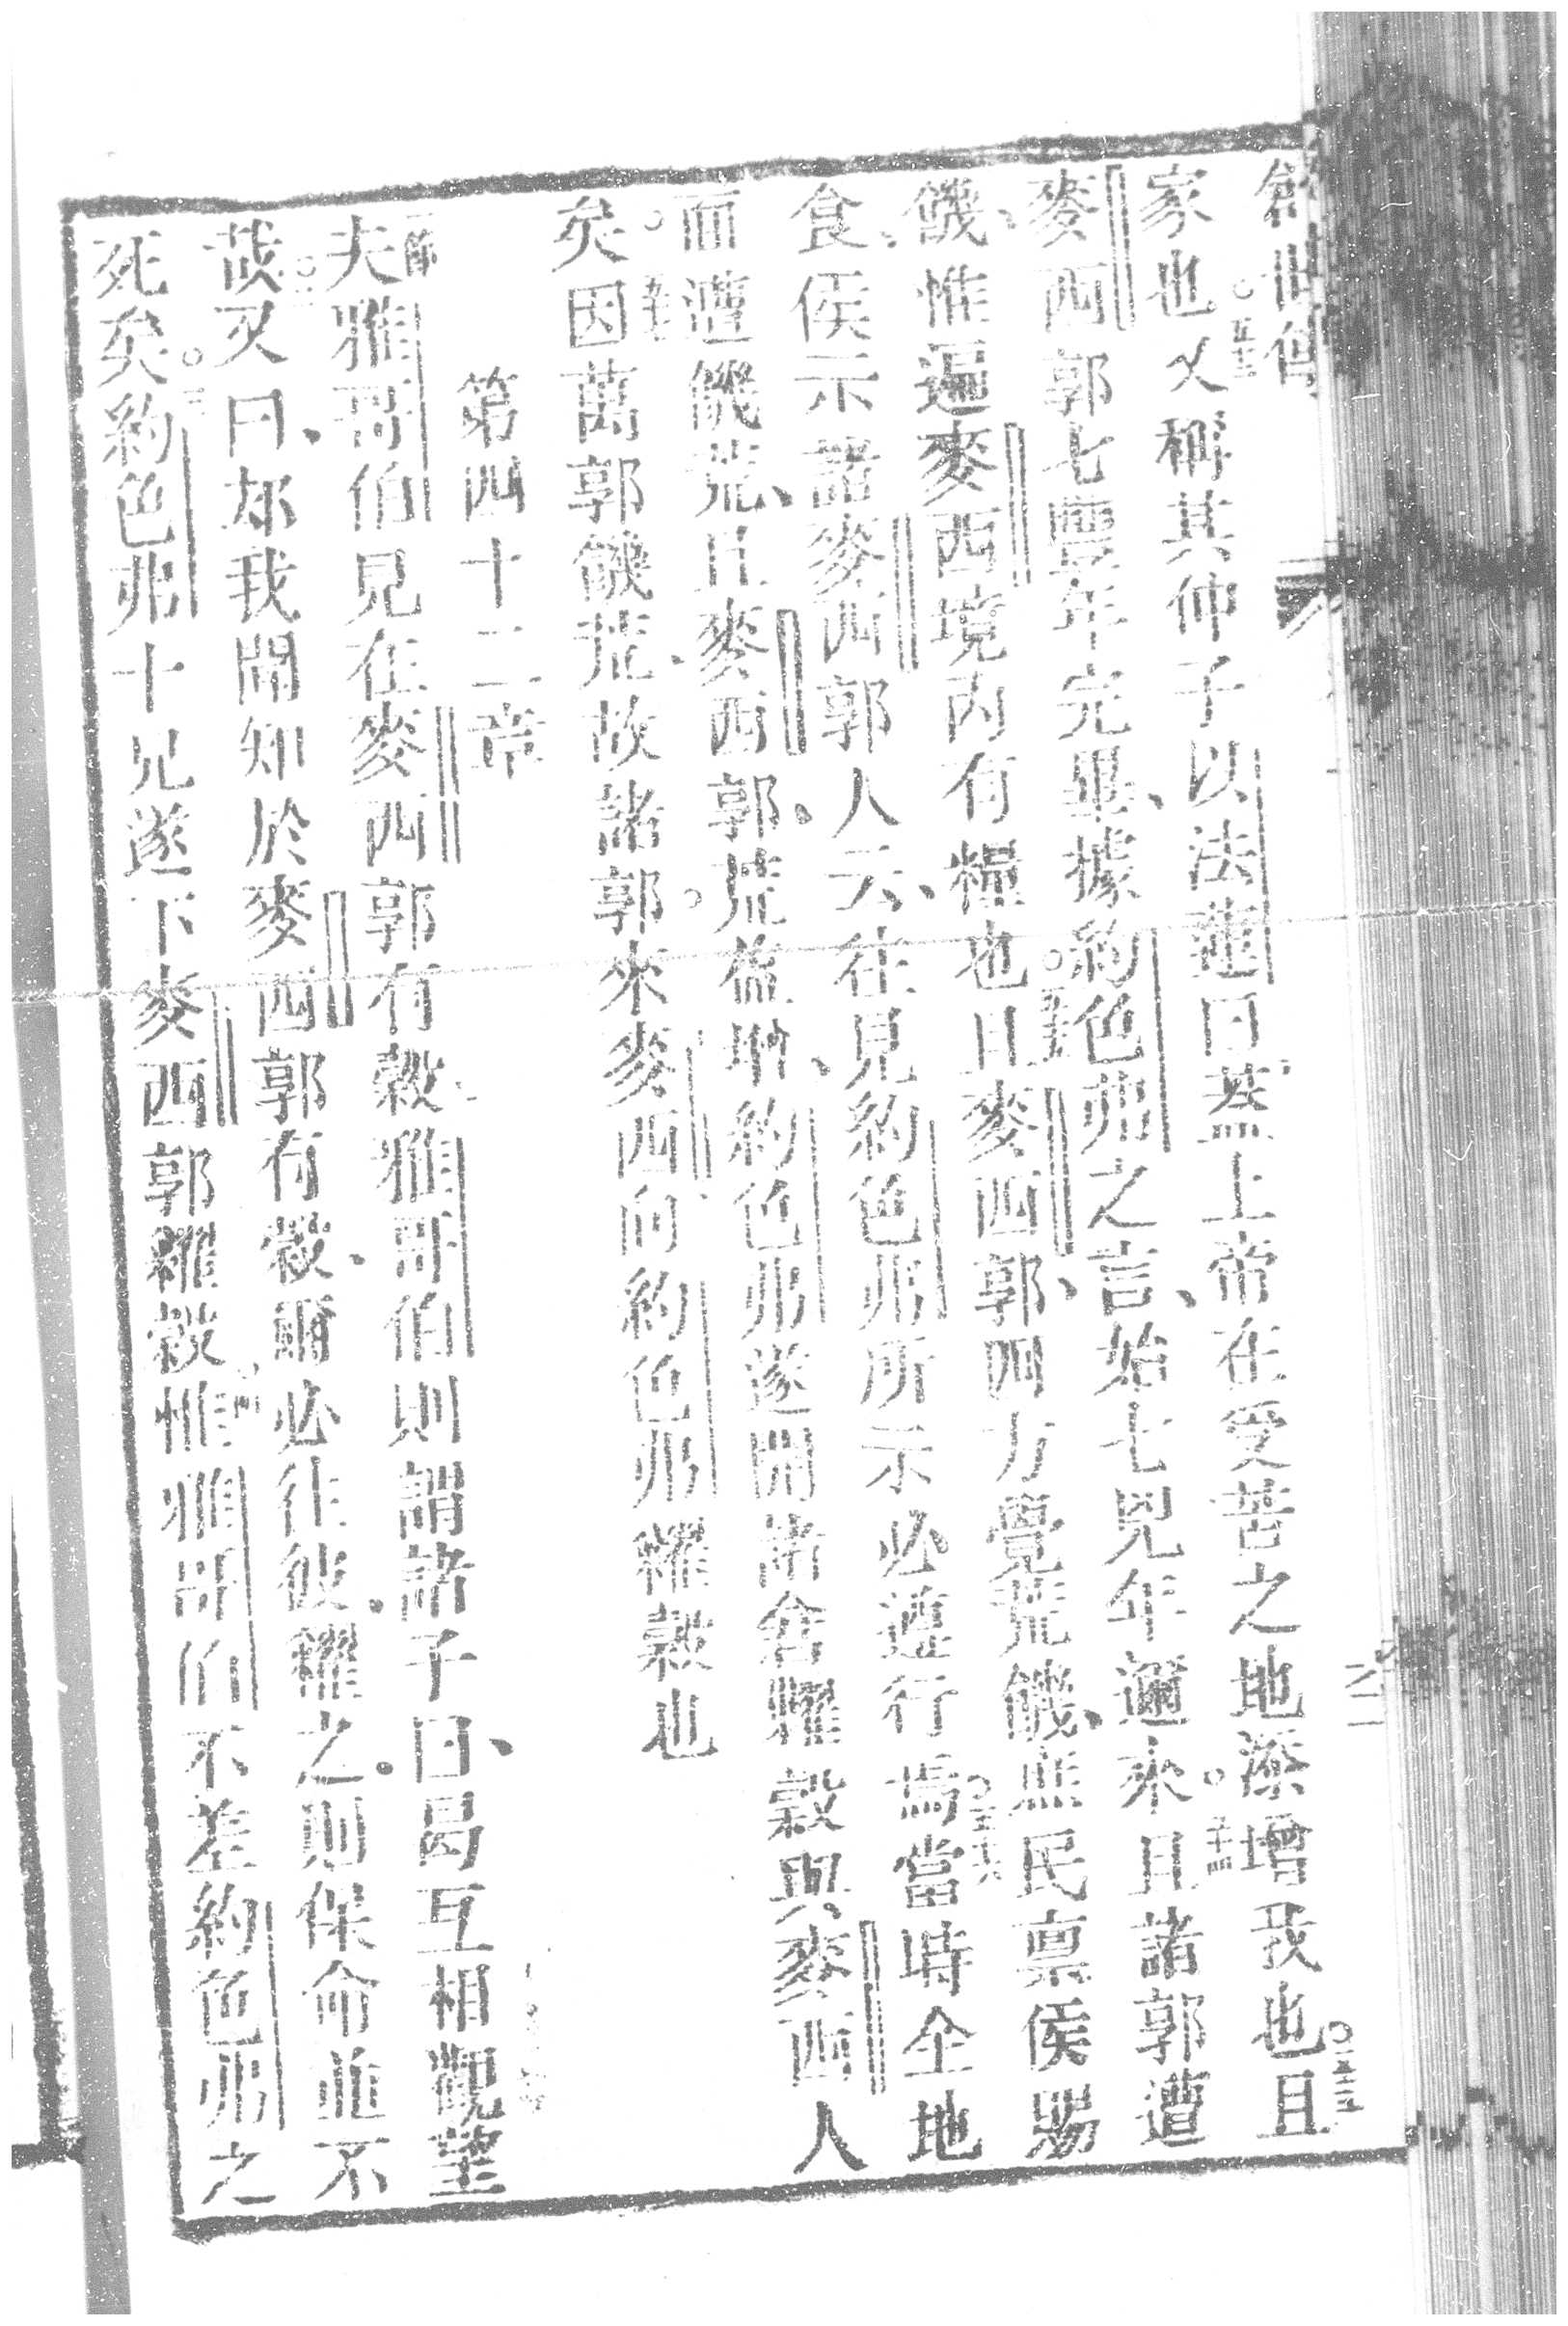 家也又稱其仲子以法蓮曰蓋上帝在受苦之地添增我也○五十三且
麥西郭七豐年完畢、據約色弗之言、始七兇年邇來。且諸郭遭
饑、惟遍麥西境內有糧也○且麥西郭四方覺荒饑、焦民稟侯賜
食、侯示諸麥西郭人云、往見約色弗、所示必遵行焉○當時全地
面遭饑荒、且麥西郭荒益增、約色弗遂開諸倉糶穀與麥西人
矣。因萬郭饑荒、故諸郭來麥西向約色弗糴穀也
第四十二章
夫雅哥伯見在麥西郭有穀、雅哥伯則謂諸子曰、曷互相觀望
哉○二又曰、我聞知於麥西郭有穀、爾必往彼糴之。則保命並不
死矣○三約色弗十兄遂下麥西郭糴穀○四惟雅哥伯不差約色弗之